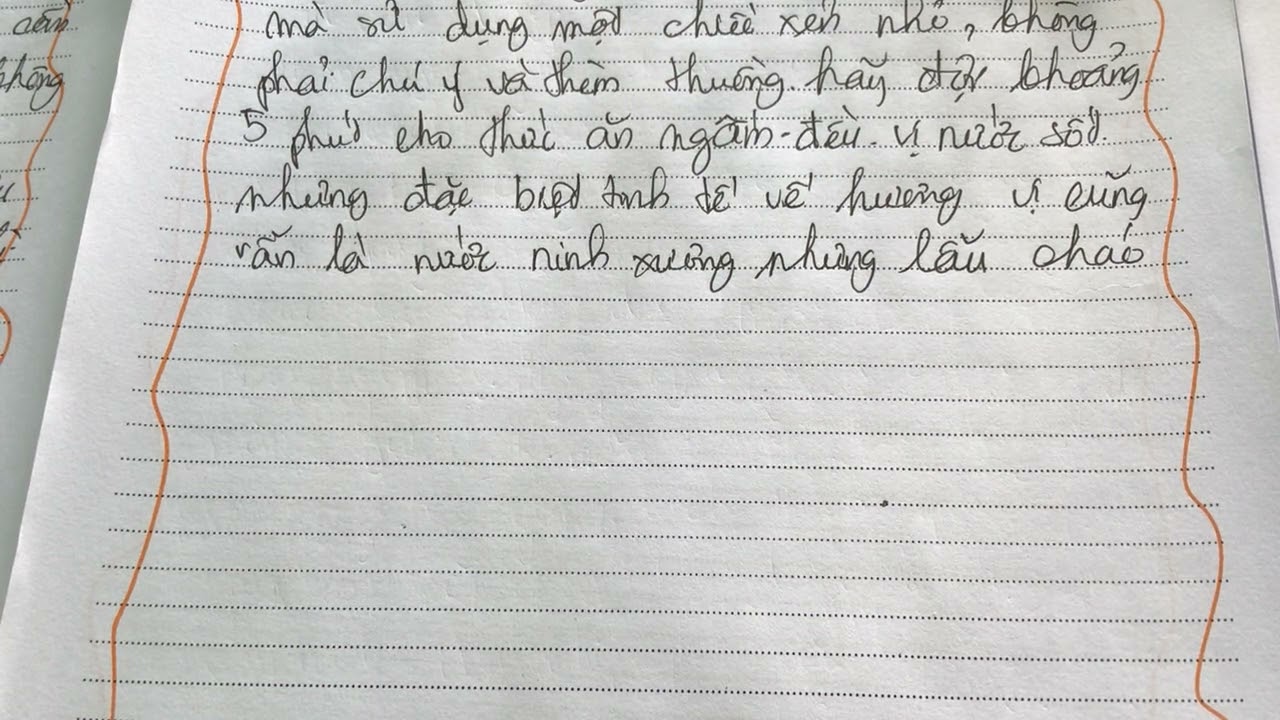 cần
không
mà sử dụng một chiếc xẻn nhỏ, không
phải chú ý và thèm thuồng. hãy đợi khoảng
5 phút cho thức ăn ngấm đều. vị nước sốt.
nhưng đặc biệt tinh tế về hương vị cũng
vẫn là nước ninh xương nhưng lẩu cháo